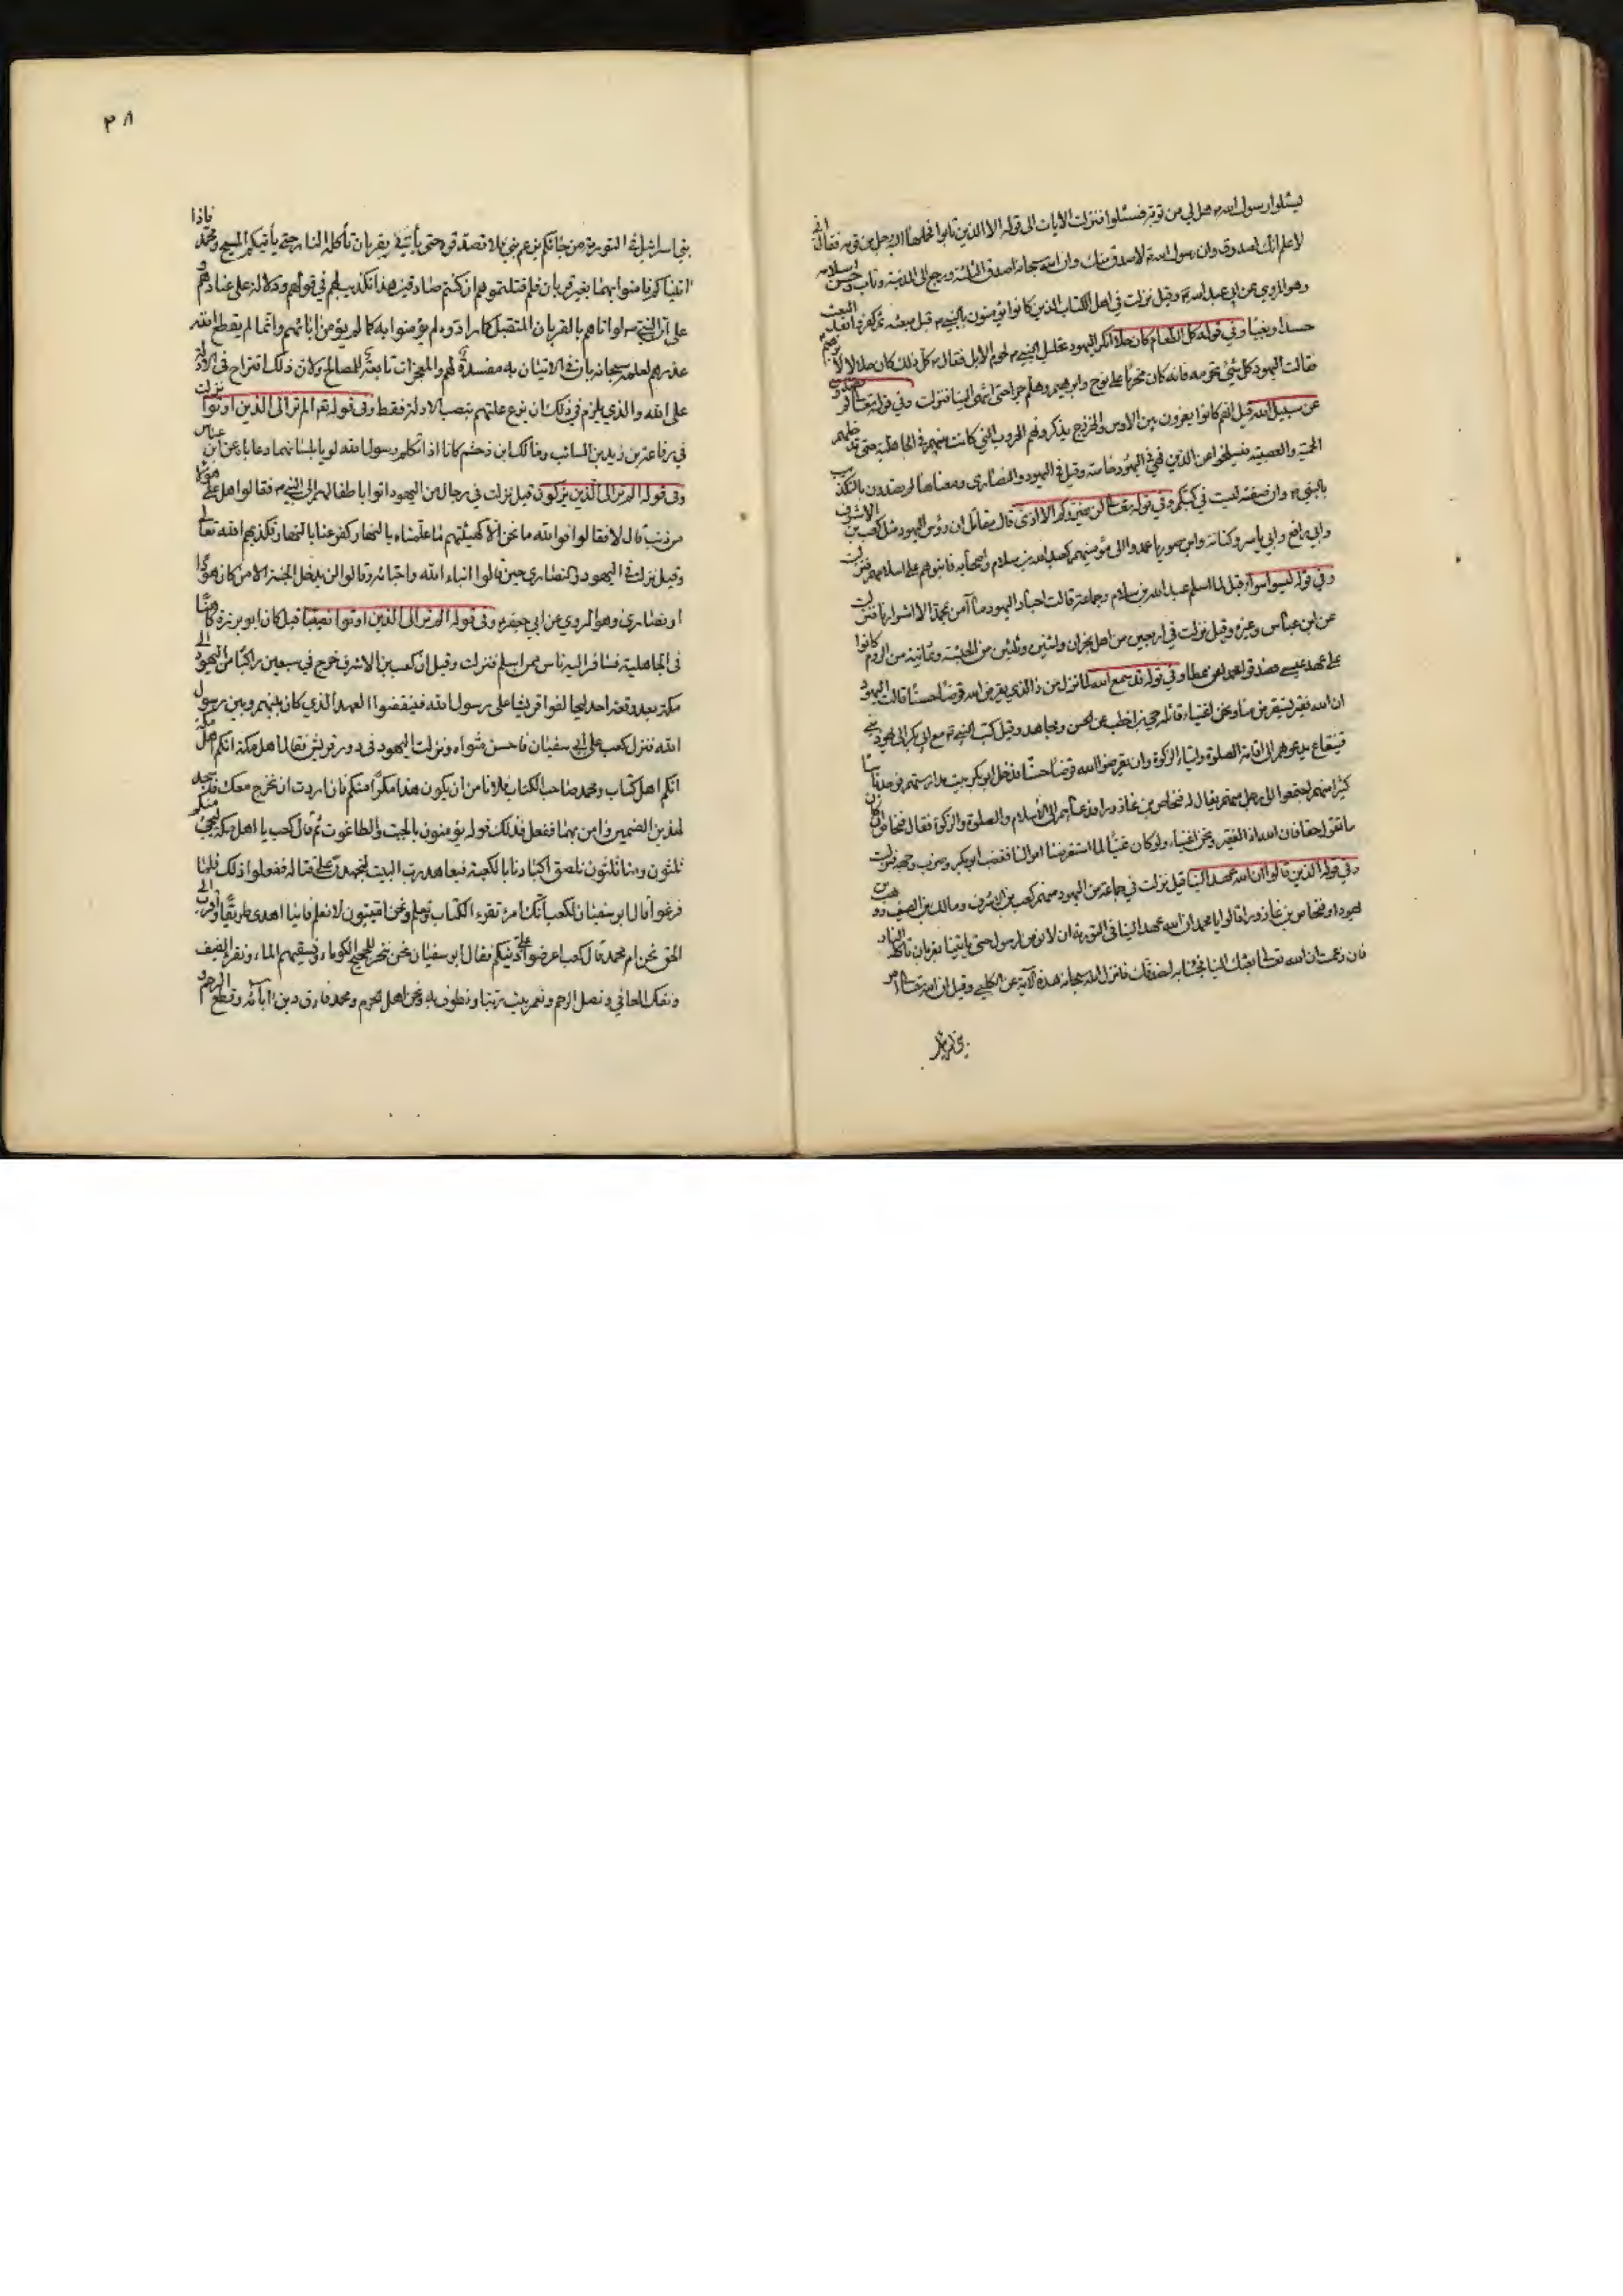 ليسئلوا رسول الله ص هل لي من توبة فسئلوا فنزلت الايات الى قوله الا الذين تابوا فحملها اليه رجل من قومه فقال اني
لاعلم انك لصدوق وان رسول الله ص لاصدق منك وان الله سبحانه اصدق الثلثة ورجع الى المدينة وتاب وحسن اسلامه
وهو المروي عن ابي عبد الله ع وقيل نزلت في اهل الكتاب الذين كانوا يؤمنون بالنبي ص قبل مبعثه ثم كفروا بعد البعث
حسدا وبغيا وفي قوله كل الطعام كان حلا انكر اليهود تحليل النبي ص لحوم الابل فقال ص كل ذلك كان حلالا لابرهيم
فقالت اليهود كل شيء نحرمه فانه كان محرما على نوح وابرهيم وهلم جرا حتى انتهى الينا فنزلت وفي قوله تعالى لم تصدون
عن سبيل الله قيل انهم كانوا يغرون بين الاوس والخزرج يذكرونهم الحروب التي كانت بينهم في الجاهلية حتى تدخلهم
الحمية والعصبية فينسلخوا عن الدين فهي في اليهود خاصة وقيل في اليهود والنصارى ومعناها لم يصدون بالتكذيب
بالنبي ص وان صفته ليست في كتبكم وفي قوله تعالى لن يضروكم الا اذى قال مقاتل ان رؤس اليهود مثل كعب بن الاشرف
وابي رافع وابي ياسر وكنانة وابن صوريا عمدوا الى مؤمنيهم كعبد الله بن سلام واصحابه فانبوهم على اسلامهم فنزلت
وفي قوله ليسوا سواء قيل لما اسلم عبد الله بن سلام وجماعة قالت احبار اليهود ما آمن بمحمد الا اشرارنا فنزلت
عن ابن عباس وغيره وقيل نزلت في اربعين من اهل نجران واثنين وثلثين من الحبشة وثمانية من الروم كانوا
على عهد عيسى فصدقوا محمدا عن عطا وفي قوله لقد سمع الله لما نزل من ذا الذي يقرض الله قرضا حسنا قالت اليهود
ان الله فقير يستقرض منا ونحن اغنياء قائله حيي بن اخطب عن الحسن ومجاهد وقيل كتب النبي ص مع ابي بكر الى يهود بني
قينقاع يدعوهم الى اقامة الصلوة وايتاء الزكوة وان يقرضوا الله قرضا حسنا فدخل ابو بكر بيت مدارستهم فوجد ناسا
كثيرا منهم اجتمعوا الى رجل منهم يقال له فنحاص بن عازوراء فدعاهم الى الاسلام والصلوة والزكوة فقال فنحاص ان كان
ما تقول حقا فان الله اذا لفقير ونحن اغنياء ولو كان غنيا لما استقرضنا اموالنا فغضب ابو بكر وضرب وجهه فنزلت
وفي قوله الذين قالوا ان الله عهد الينا قيل نزلت في جماعة من اليهود منهم كعب بن الاشرف ومالك بن الصيف ووهب بن
يهودا وفنحاص بن عازوراء قالوا يا محمد ان الله عهد الينا في التورية ان لا نؤمن لرسول حتى ياتينا بقربان تاكله النار
فان زعمت ان الله تعالى بعثك الينا فجئنا به لنصدقك فانزل الله سبحانه هذه الآية عن الكلبي وقيل ان الله تعالى امر
بني اسرائيل
٣٨
بني اسرائيل في التورية من جائكم يزعم نبي فلا تصدقوه حتى يأتي بقربان تأكله النار حتى يأتيكم المسيح ومحمد فاذا
اتياكم فامنوا بهما بغير قربان فلم قتلتموهم ان كنتم صادقين هذا تكذيب لهم في قولهم ودلالة على عنادهم و
على ان النبي ص لو اتاهم بالقربان المتقبل كما ارادوه لم يؤمنوا به كما لم يؤمن ابائهم وانما لم يقطع الله
عذرهم لعلمه سبحانه بان في الاتيان به مفسدة لهم والمعجزات تابعة للمصالح ولان ذلك اقتراح في الادلة
على الله والذي يلزم في ذلك ان يزيح علتهم بنصب الادلة فقط وفي قوله تعالى الم تر الى الذين اوتوا نزلت
في رفاعة بن زيد بن السائب ومالك ابن دخشم كانا اذا تكلم رسول الله لويا لسانهما وعاباه عن ابن عباس
وفي قوله الم تر الى الذين يزكون قيل نزلت في رجال من اليهود اتوا باطفالهم الى النبي ص فقالوا هل على هؤلاء
من ذنب قال لا فقالوا فوالله ما نحن الا كهيئتهم ما عملناه بالنهار كفر عنا بالليل فكذبهم الله تعالى
وقيل نزلت في اليهود والنصارى حين قالوا ابناء الله واحباؤه وقالوا لن يدخل الجنة الا من كان هودا
او نصارى وهو المروي عن ابي جعفر ع وفي قوله الم تر الى الذين اوتوا نصيبا قيل كان ابو برزة كاهنا
في الجاهلية فتنافر اليه ناس ممن اسلم فنزلت وقيل ان كعب بن الاشرف خرج في سبعين راكبا من اليهود الى
مكة بعد وقعة احد ليحالفوا قريشا على رسول الله فينقضوا العهد الذي كان بينهم وبين رسول
الله فنزل كعب على ابي سفيان فاحسن مثواه ونزلت اليهود في دور قريش فقال اهل مكة انكم اهل
انكم اهل كتاب ومحمد صاحب الكتاب فلا نامن ان يكون هذا مكرا منكم فان اردت ان نخرج معك فاسجد
لهذين الصنمين وامن بهما ففعل فذلك قوله يؤمنون بالجبت والطاغوت ثم قال كعب يا اهل مكة ليجيء منكم
ثلثون ومنا ثلثون نلصق اكبادنا بالكعبة فنعاهد رب البيت لنجهدن على قتاله ففعلوا ذلك فلما
فرغوا قال ابو سفيان لكعب انك امرؤ تقرء الكتاب وتعلم ونحن اميون لا نعلم فاينا اهدى طريقا واقرب الى
الحق نحن ام محمد قال كعب اعرضوا علي دينكم فقال ابو سفيان نحن ننحر للحجيج الكوماء ونسقيهم الماء ونقري الضيف
ونفك العاني ونصل الرحم ونعمر بيت ربنا ونطوف به ونحن اهل الحرم ومحمد فارق دين ابائه وقطع الرحم